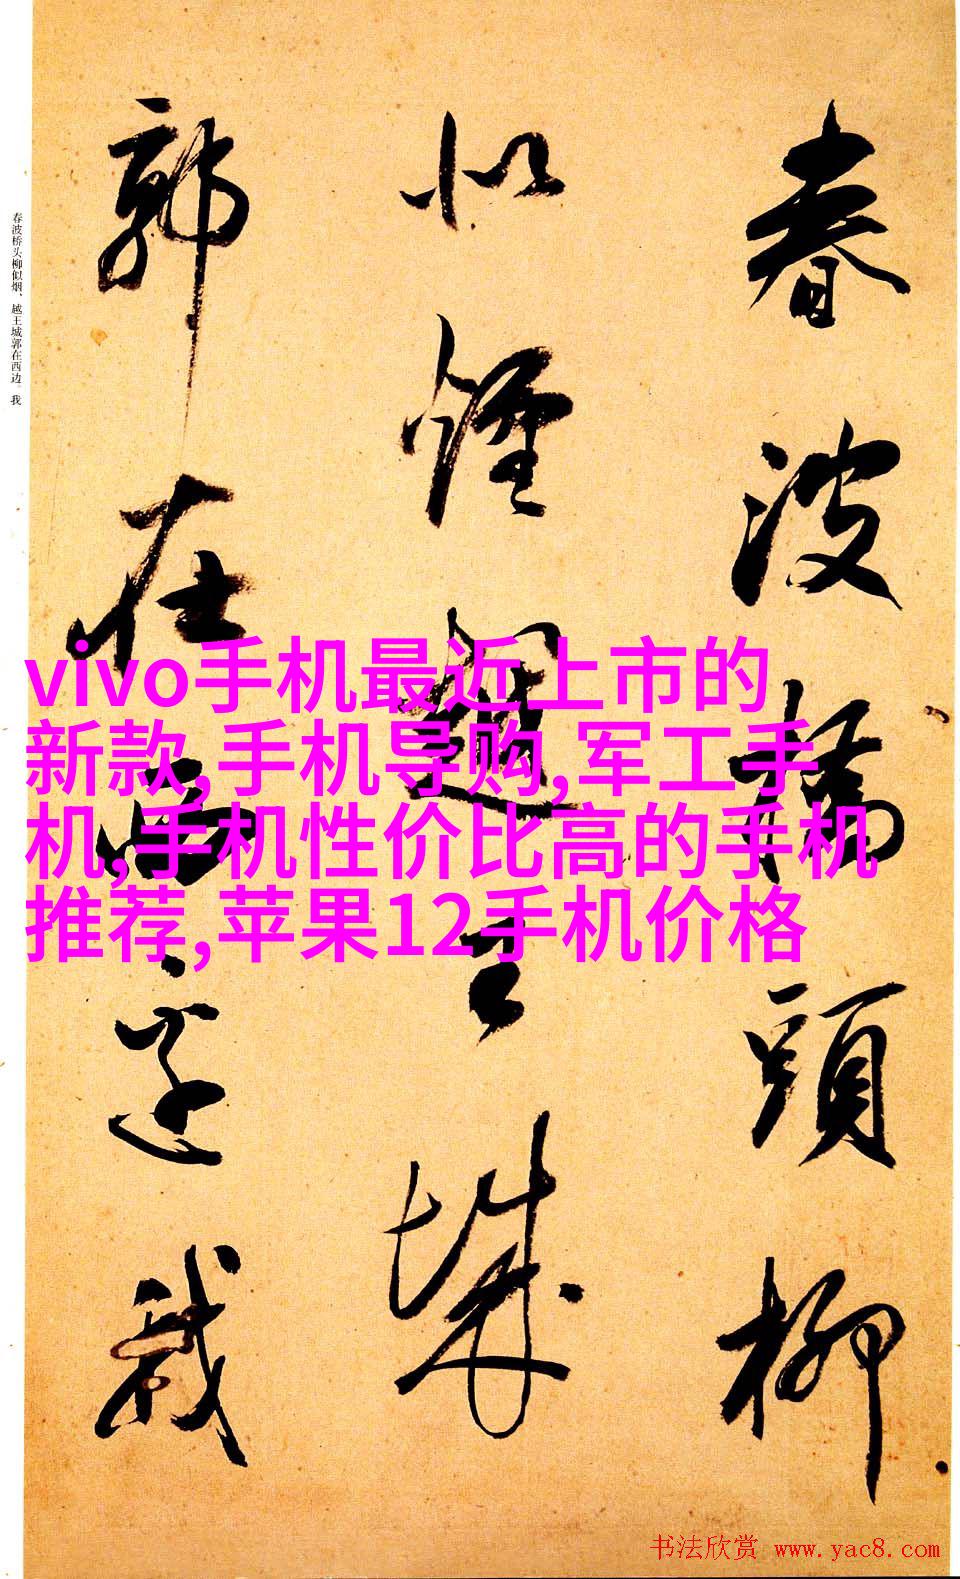 春波橋頭柳
似煙越王城
郭在西邊我
春波桥头柳似烟、越王城郭在西边。我
vivo手机最近上市的
新款,手机导购,军工手
机,手机性价比高的手机
推荐,苹果12手机价格
书法欣赏 www.yac8.com